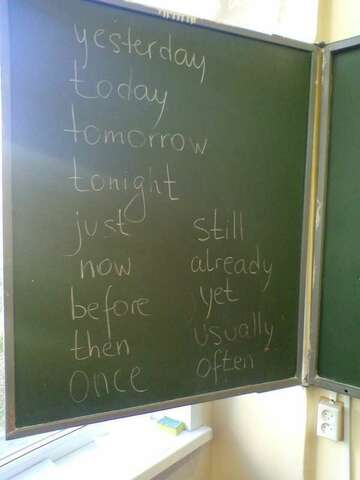 yesterday
today
tomorrow
tonight
just still
now already
before yet
then usually
once often